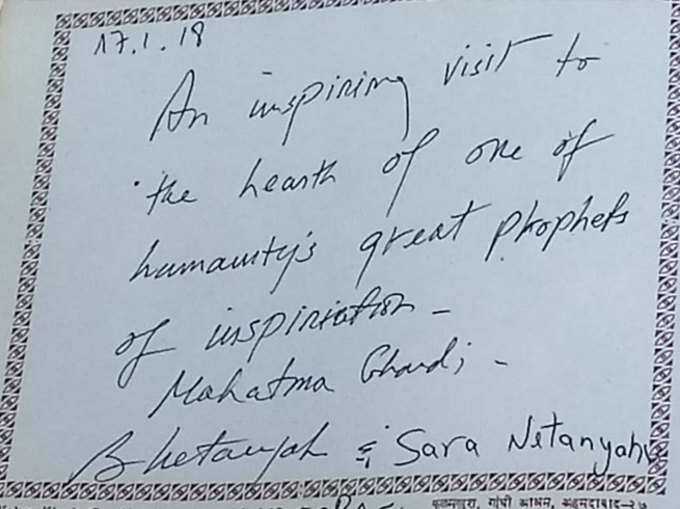 17.1.18
An inspiring visit to
the hearth of one of
humanity's great prophets
of inspiration -
Mahatma Ghandi -
B Netanyahu & Sara Netanyahu
गांधी आश्रम, अहमदाबाद-२७